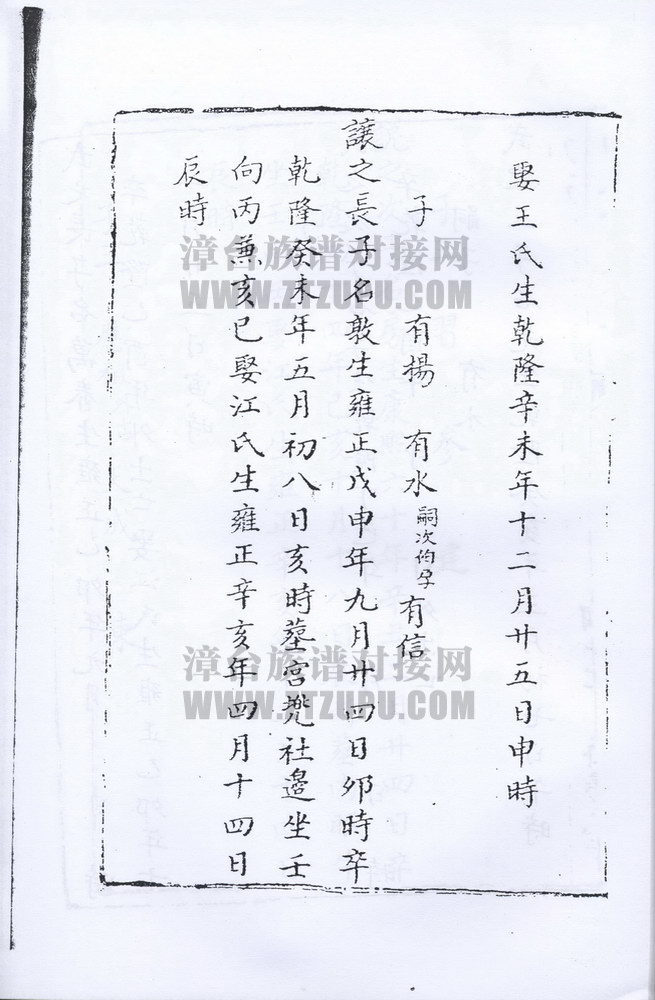 娶王氏生乾隆辛未年十二月廿五日申時
子 有揚 有水嗣次伯孕有信
讓之長子名敦生雍正戊申年九月廿四日卯時卒
乾隆癸未年五月初八日亥時墓宮兠社邉坐壬
向丙兼亥巳娶江氏生雍正辛亥年四月十四日
辰時
漳台族谱对接网
WWW.ZTZUPU.COM
漳台族谱对接网
WWW.ZTZUPU.COM